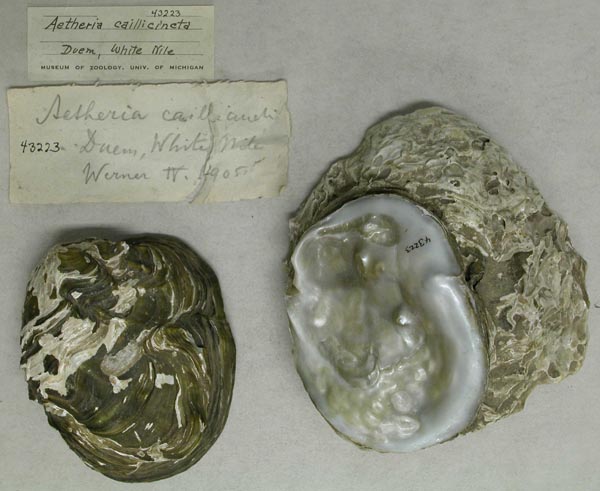 43223
Aetheria caillicincta
Duem, White Nile
MUSEUM OF ZOOLOGY, UNIV. OF MICHIGAN
Aetheria cailliaudi
43223 Duem, White Nile
Werner IV. 1905
43223